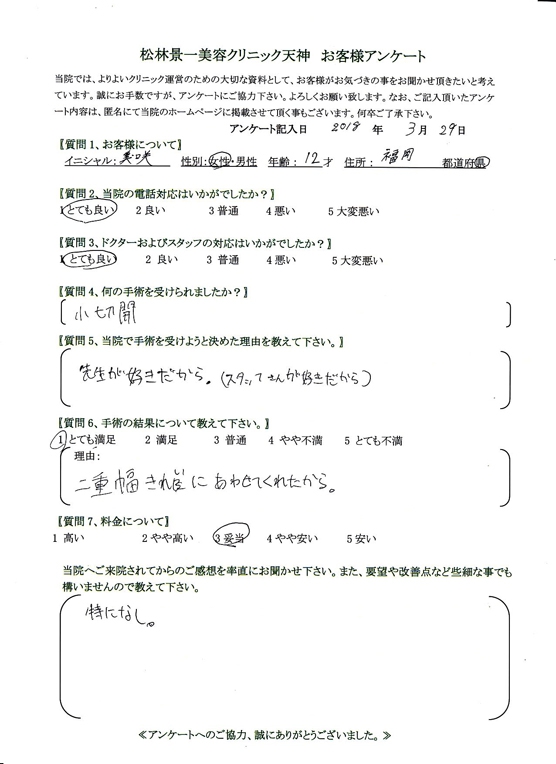 松林景一美容クリニック天神　お客様アンケート
当院では、よりよいクリニック運営のための大切な資料として、お客様がお気づきの事をお聞かせ頂きたいと考え
ています。誠にお手数ですが、アンケートにご協力下さい。よろしくお願い致します。なお、ご記入頂いたアンケ
ート内容は、匿名にて当院のホームページに掲載させて頂く事もございます。何卒ご了承下さい。
アンケート記入日　2018　年　3月　29日
【質問1、お客様について】
イニシャル：美咲　性別：女性・男性　年齢：12才　住所：福岡　都道府県
【質問2、当院の電話対応はいかがでしたか？】
1とても良い　2良い　3普通　4悪い　5大変悪い
【質問3、ドクターおよびスタッフの対応はいかがでしたか？】
1とても良い　2 良い　3 普通　4悪い　5大変悪い
【質問4、何の手術を受けられましたか？】
小切開
【質問5、当院で手術を受けようと決めた理由を教えて下さい。】
先生が好きだから。（スタッフさんが好きだから）
【質問6、手術の結果について教えて下さい。】
1とても満足　2 満足　3 普通　4 やや不満　5 とても不満
理由：
二重幅きれいにあわせてくれたから。
【質問7、料金について】
1 高い　2やや高い　3妥当　4やや安い　5安い
当院へご来院されてからのご感想を率直にお聞かせ下さい。また、要望や改善点など些細な事でも
構いませんので教えて下さい。
特になし。
≪アンケートへのご協力、誠にありがとうございました。≫